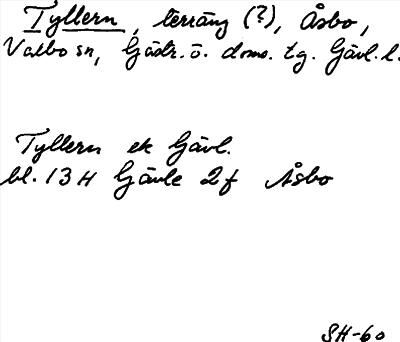 Tyllern, terräng (?), Åsbo,
Valbo sn, Gästr. ö. doms. tg. Gävl. l.
Tyllern ek Gävl.
bl. 13 H Gävle 2f Åsbo
SH-60